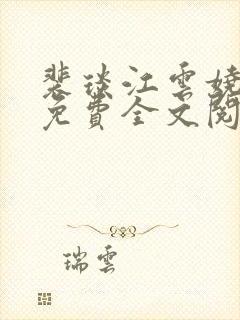 裴琰江雲嬈
免費全文閱
瑞雲